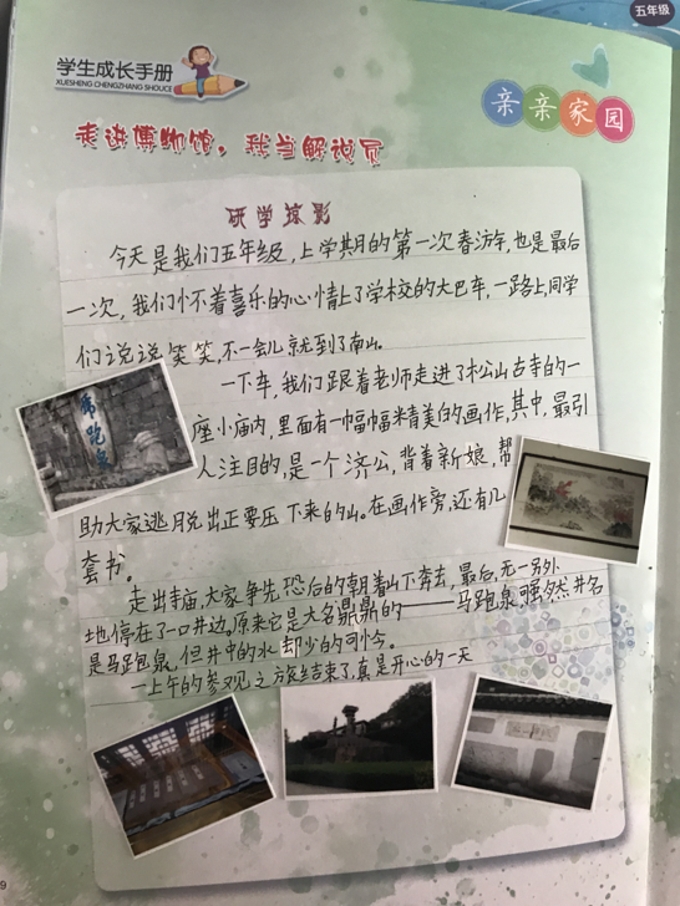 五年级
学生成长手册
XUESHENG CHENGZHANG SHOUCE
亲亲家园
走进博物馆,我当解说员
研学掠影
今天是我们五年级,上学期的第一次春游,也是最后
一次,我们怀着喜乐的心情上了学校的大巴车,一路上,同学
们说说笑笑,不一会儿就到了南山。
一下车,我们跟着老师走进了松山古寺的一
座小庙内,里面有一幅幅精美的画作,其中,最引
人注目的,是一个济公,背着新娘,帮
助大家逃脱出正要压下来的山。在画作旁,还有几
套书。
走出寺庙,大家争先恐后的朝着山下奔去,最后,无一另外
地停在了一口井边。原来它是大名鼎鼎的——马跑泉,虽然井名
是马跑泉,但井中的水却少的可怜。
一上午的参观之旅结束了,真是开心的一天
跑泉
9